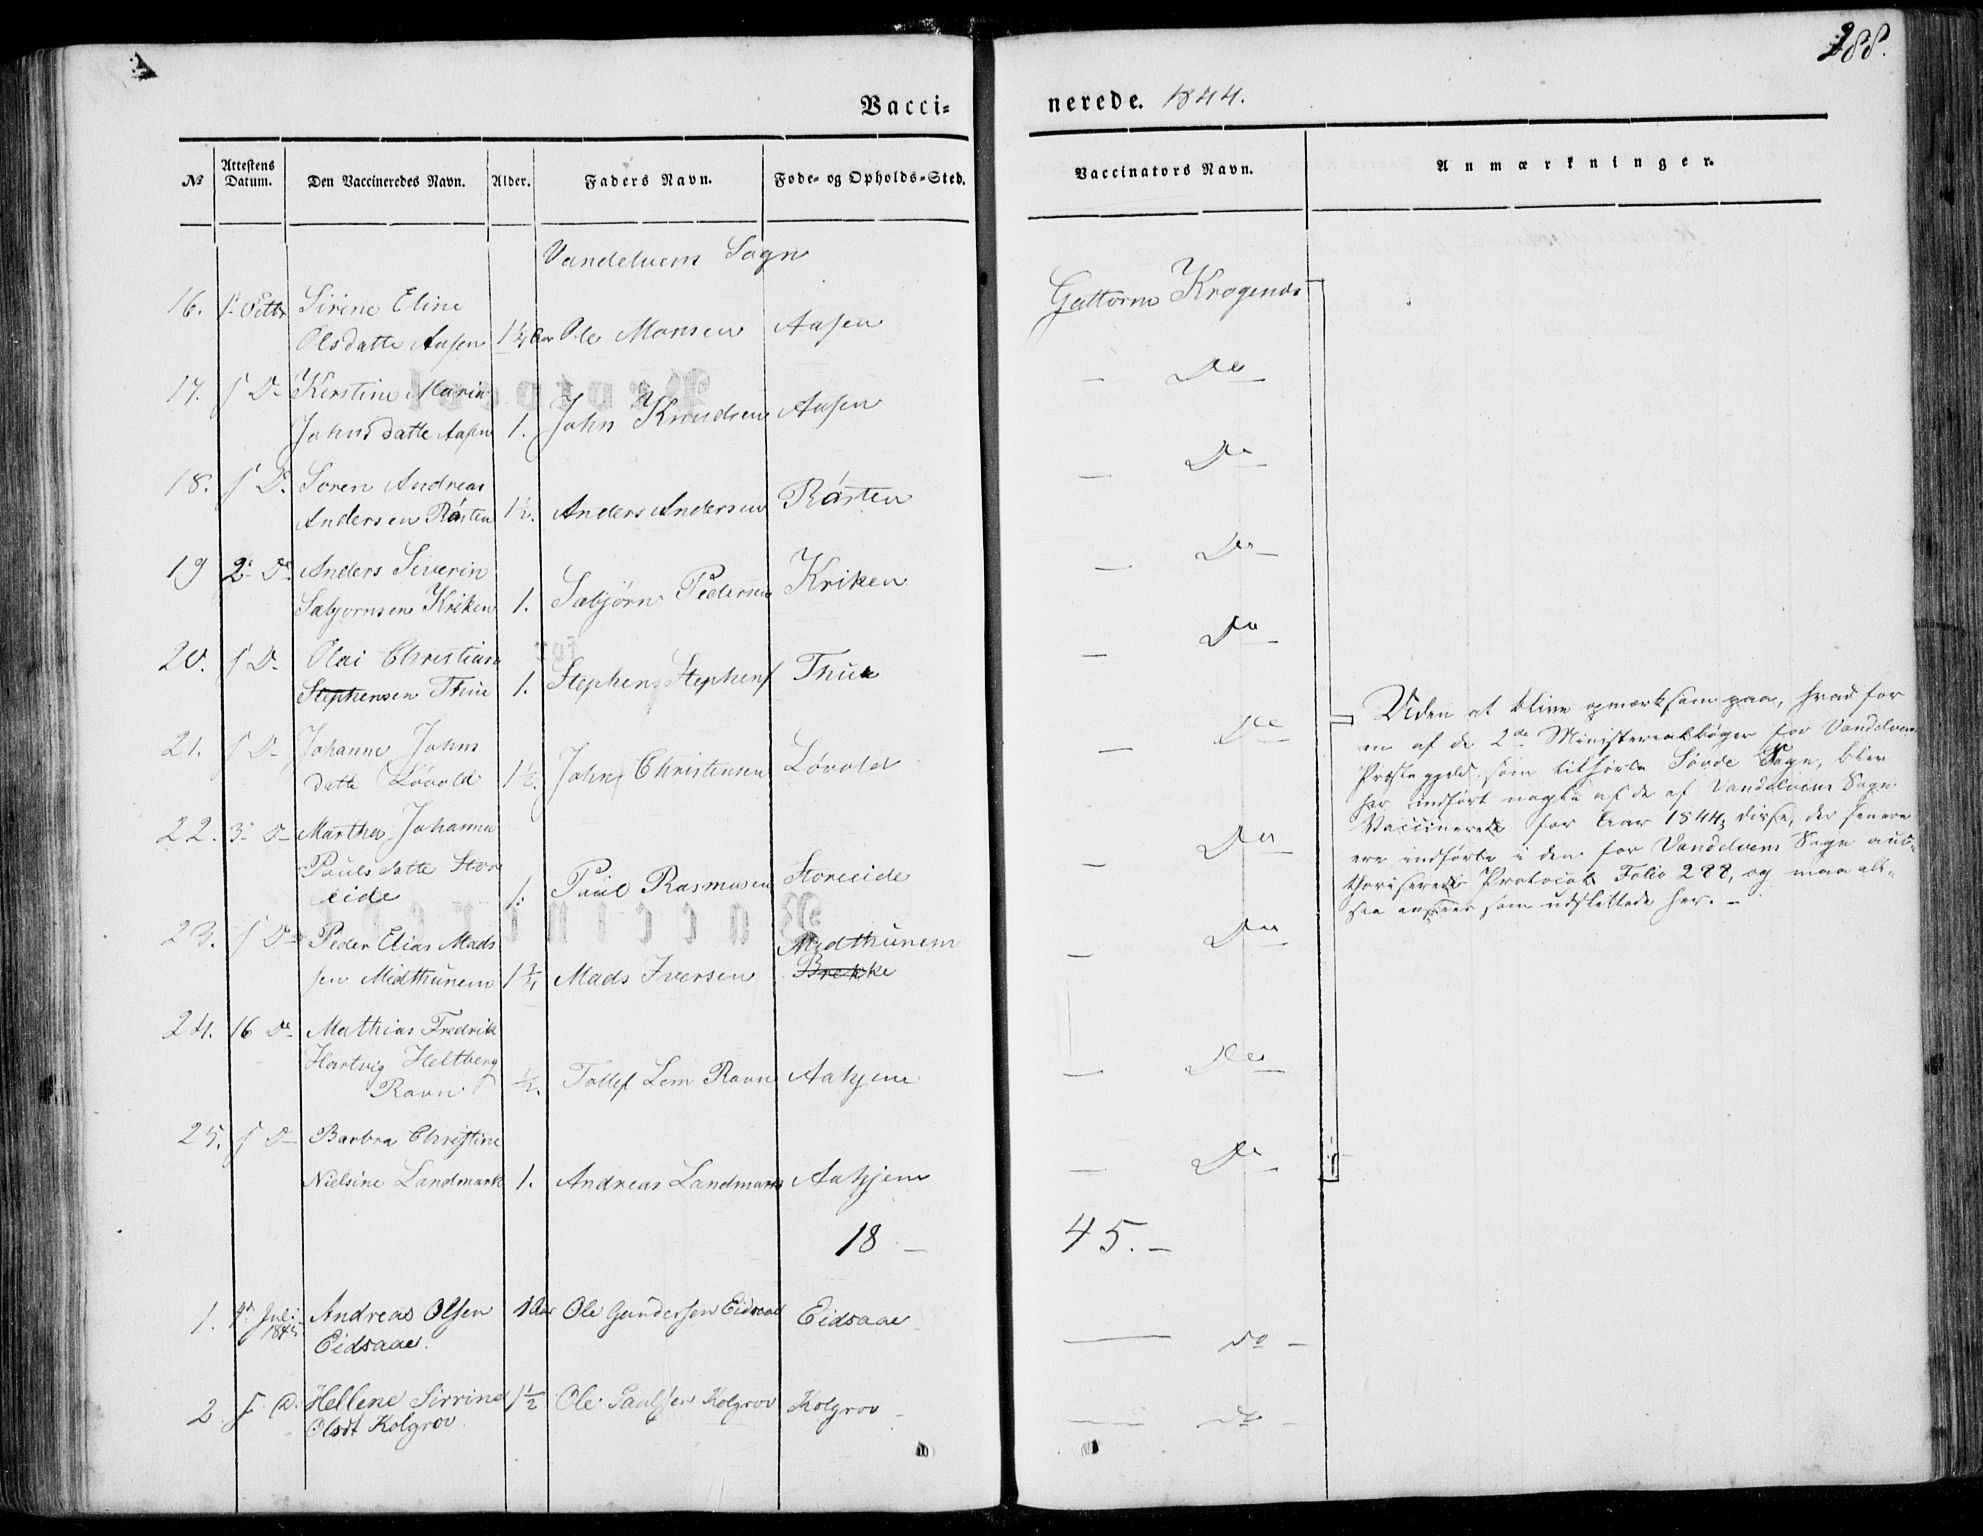 288.
Vacci-
nerede. 1844.
№ Attestens Datum. Den Vaccineredes Navn. Alder. Faders Navn. Føde- og Opholds-Sted. Vaccinators Navn. Anmærkninger.
Vandelvens Sogn
16. 1. Octbr Sirine Eline
Olsdatte Aasen 1¼ Aar Ole Monsen Aasen Gattorm Krogenæs
17. f D. Kirstine Marie
Johnsdatte Aasen 1. John Knudsen Aasen — Do
18. f D. Soren Andreas
Andersen Røsten 1½. Anders Andersen Røsten — Do
19 2 Do Anders Siverin
Sabjornsen Kriken 1. Sabjørn Pedersen Kriken — Do
20. f D. Olai Christian
Stephensen Thue 1. Stephen Stephens Thue — Do
21. f D Johanne Johns
datte Løvold 1½. John Christensen Løvold — Do
22. 3 D Marthe Johanne
Pauls datte Stor
eide 1. Paul Rasmusen Storeeide — Do
23. f D Peder Elias Mads
sen Midthunem 1¾ Mads Iversen Midthunem
Brekke — Do
24. 16 D Mathias Fredrik
Hartvig Heltberg
Ravn ½. Tollef Lem Ravn Aahjem — Do
25. f D Barbra Christine
Nielsine Landmark 1. Andreas Landmark Aahjem — Do
18 — 45. —
1. 4. Juli 1845 Andreas Olsen 1 Aar Ole Gundersen Eidsaae Eidsaae — do —
Eidsaae.
2 f. D. Hellene Sirrine 1½ Ole Paulsen Kolgrov Kolgrov — do —
Olsdt Kolgrov.
Uden at blive opmærksom paa, hvad for
en af de 2de Ministerialbøger for Vandelvens
Præstegjeld, som tilhørte Søvde Sogn, blev
her indført nogle af de af Vandelvens Sogn
Vaccinerede for Aar 1844, disse, der senere
ere indførte i den for Vandelvens Sogn aut-
thoriserede Protocol Folio 288, og maa alt-
saa ansees som udslettede her. —